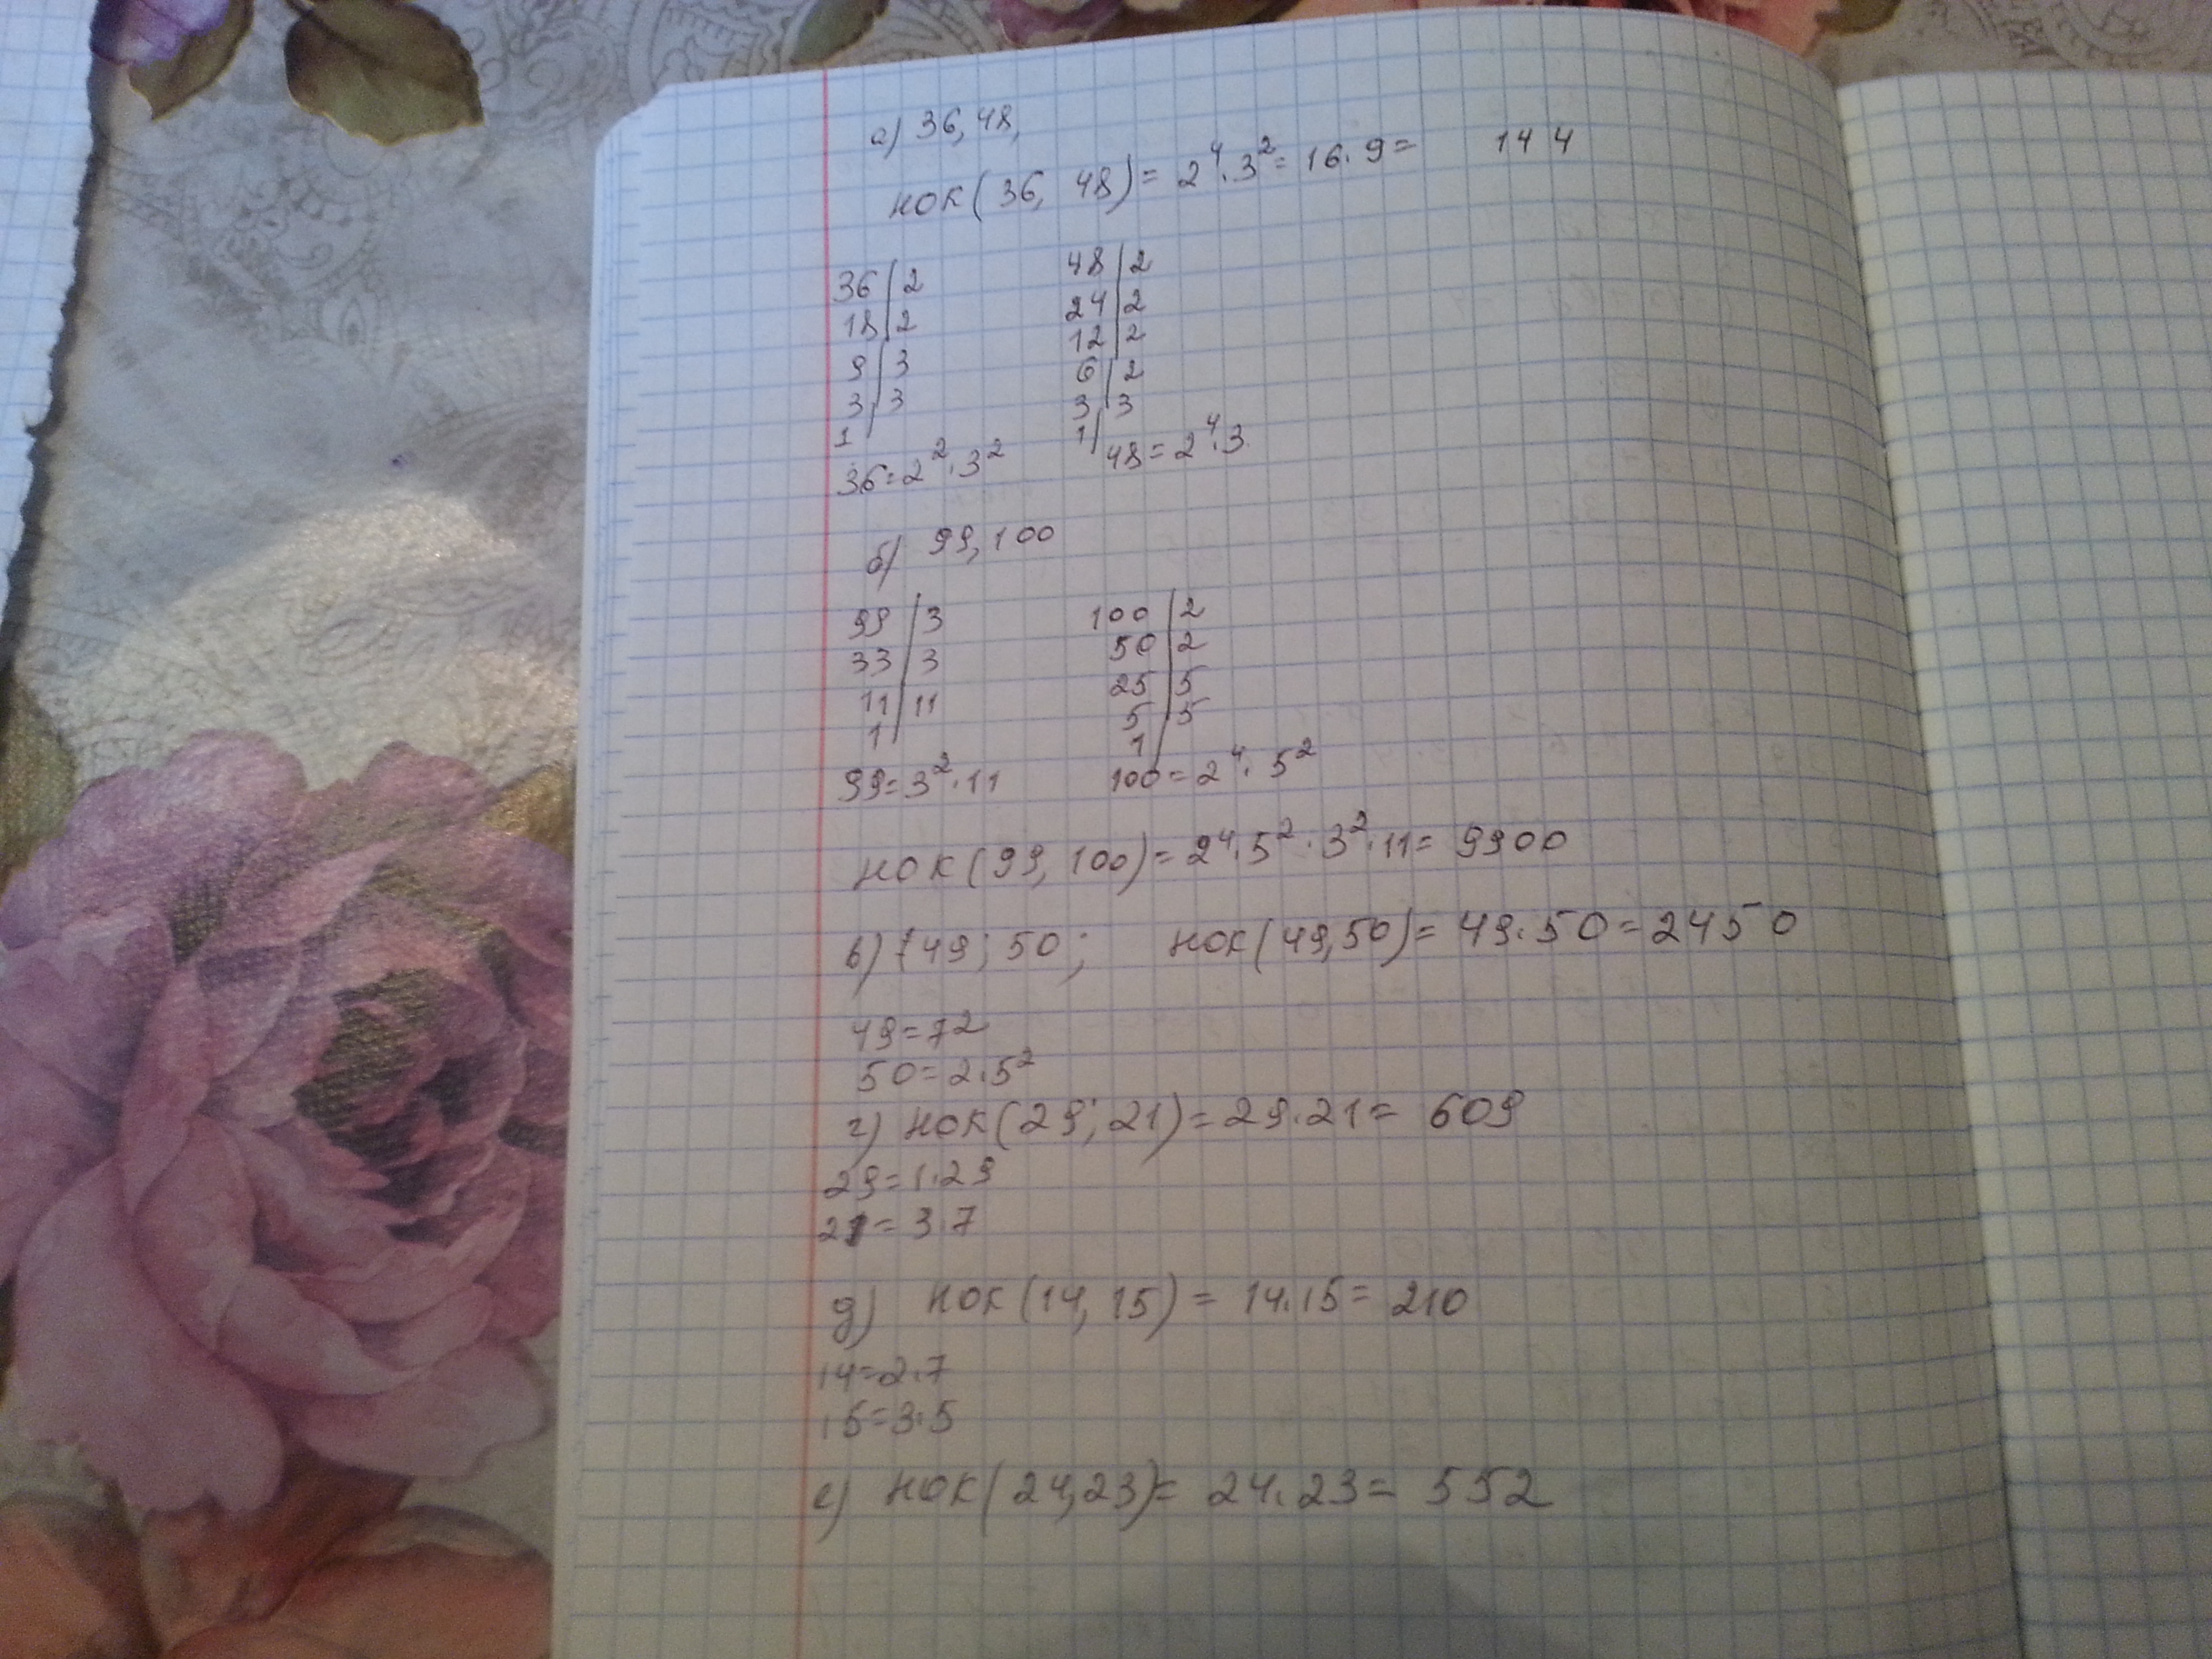 а) 36, 48,
НОК(36, 48) = 2⁴·3² = 16·9 = 144
36|2 48|2
18|2 24|2
9|3 12|2
3|3 6|2
1 3|3
1|
36=2²·3² 48=2⁴·3
б) 99, 100
99|3 100|2
33|3 50|2
11|11 25|5
1 5|5
1
99=3²·11 100=2⁴·5²
НОК(99, 100) = 2⁴·5²·3²·11 = 9900
в) 49; 50; НОК(49,50) = 49·50 = 2450
49=7²
50=2·5²
г) НОК(29; 21) = 29·21 = 609
29=1·29
21=3·7
д) НОК(14, 15) = 14·15 = 210
14=2·7
15=3·5
е) НОК(24,23) = 24·23 = 552